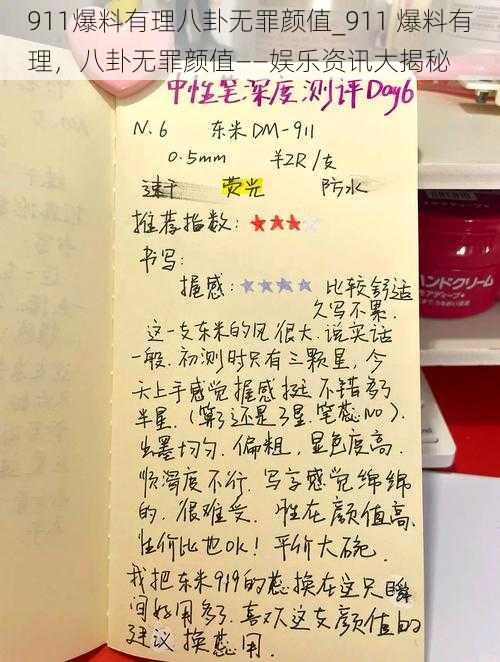 911爆料有理八卦无罪颜值_911 爆料有
理，八卦无罪颜值——娱乐资讯大揭秘
中性笔深度测评Day6
N.6 东米DM-911
0.5mm ¥2R/支
速干 荧光 防水
推荐指数：★★★☆
书写：
握感：★★★★ 比较舒适
久写不累.
这一支东米的风很大.说实话
一般.初测时只有三颗星,今
天上手感觉握感挺不错多了
半星.(算了还是3星.笔蕊NO).
出墨均匀.偏粗,显色度高.
顺滑度不行.写字感觉绵绵
的.很难受.胜在颜值高.
性价比也OK!平价大碗.
我把东米919的蕊换在这只瞬
间好用多了.喜欢这支颜值的
建议换蕊用.
ハンドクリーム